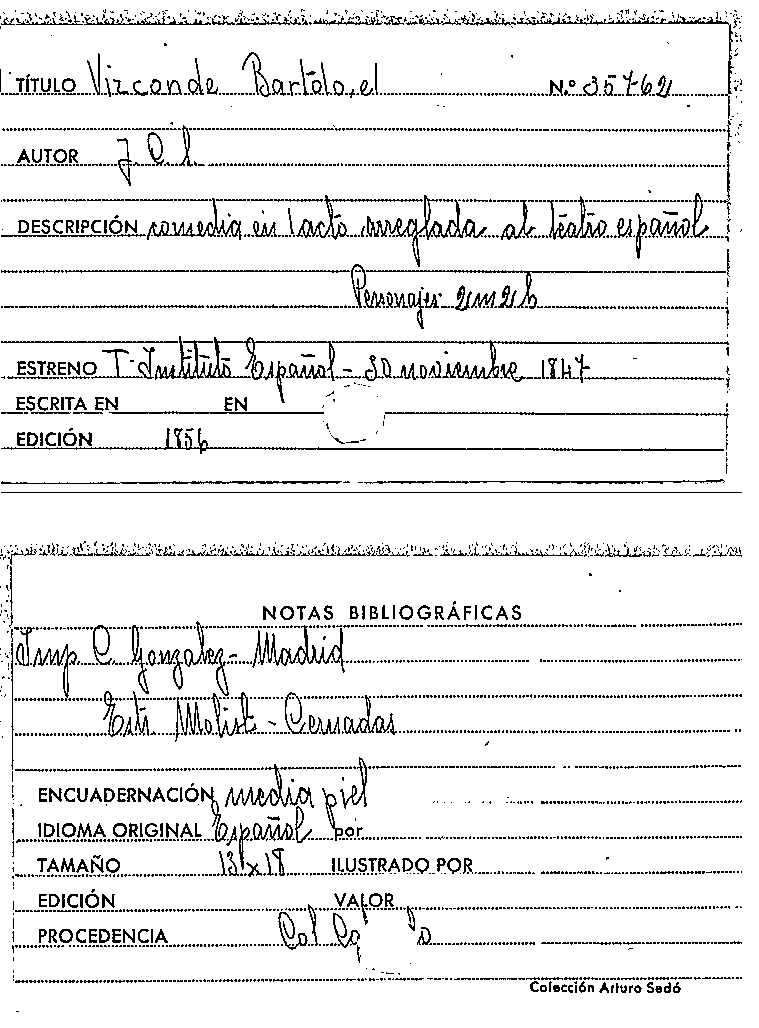 TÍTULO Vizconde Bartolo, el N.º 35762
AUTOR J. C. L.
DESCRIPCIÓN comedia en 1 acto arreglada al teatro español
Personajes 2 m 2 h
ESTRENO T. Instituto Español - 30 noviembre 1847
ESCRITA EN EN
EDICIÓN 1856
NOTAS BIBLIOGRÁFICAS
Imp C. Gonzalez - Madrid
Estr Molist - Cernadas
ENCUADERNACIÓN media piel
IDIOMA ORIGINAL Español por
TAMAÑO 13 x 18 ILUSTRADO POR
EDICIÓN VALOR
PROCEDENCIA Col
Colección Arturo Sedó